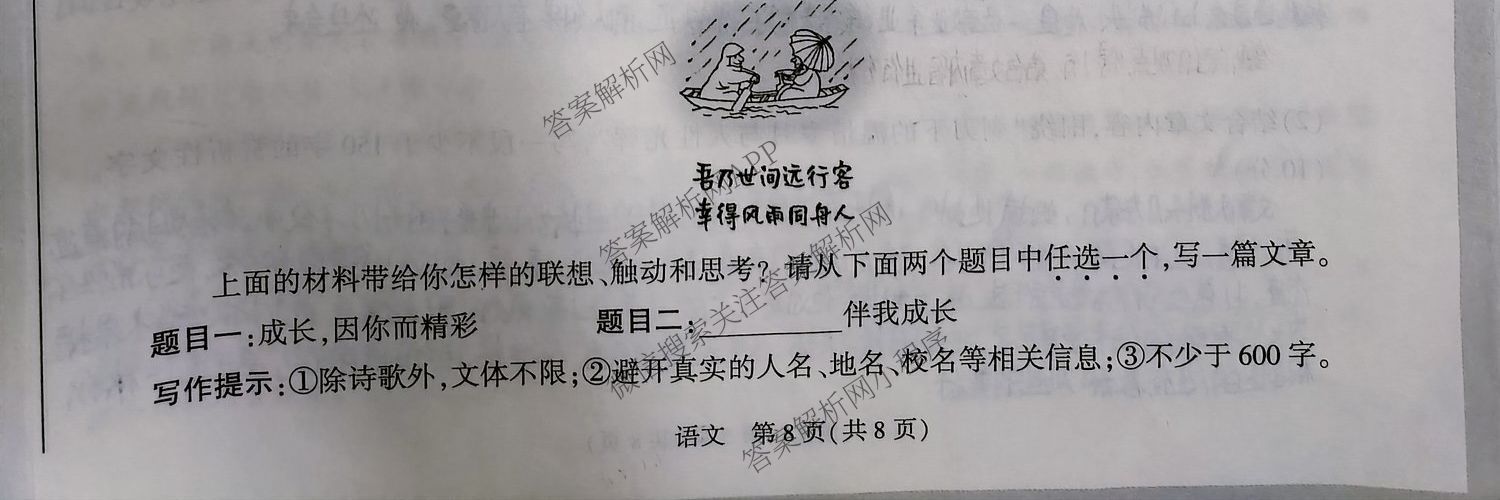 吾乃世间远行客
幸得风雨同舟人
上面的材料带给你怎样的联想、触动和思考?请从下面两个题目中任选一个,写一篇文章。
题目一:成长,因你而精彩 题目二:__________伴我成长
写作提示:①除诗歌外,文体不限;②避开真实的人名、地名、校名等相关信息;③不少于600字。
语文 第8页(共8页)
答案解析网
答案解析网APP
微信搜索关注答案解析网
答案解析网小程序